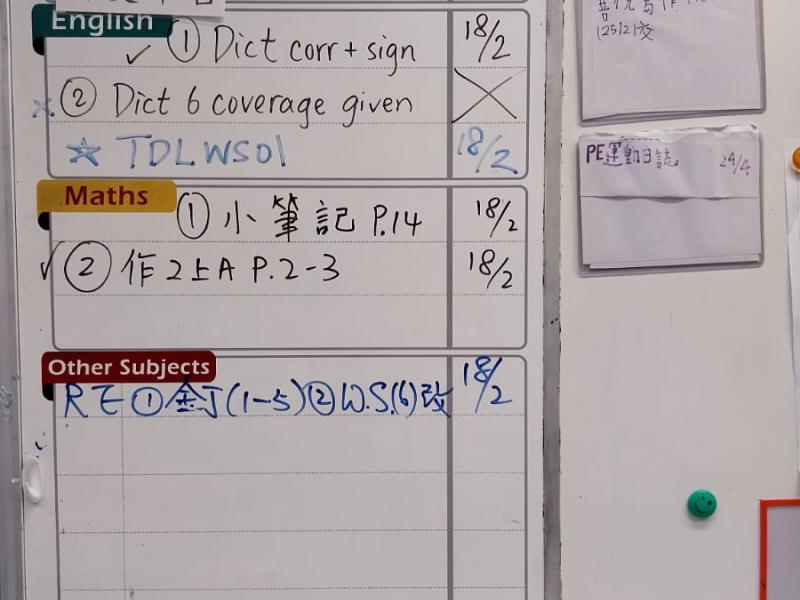 English
✓ ① Dict corr + sign 18/2
② Dict 6 coverage given
☆ TDL WS01 18/2
Maths
① 小筆記 P.14 18/2
✓ ② 作2上A P.2-3 18/2
Other Subjects
RE ① 釘(1-5) ② W.S.(6)改 18/2
PE運動日誌 24/4